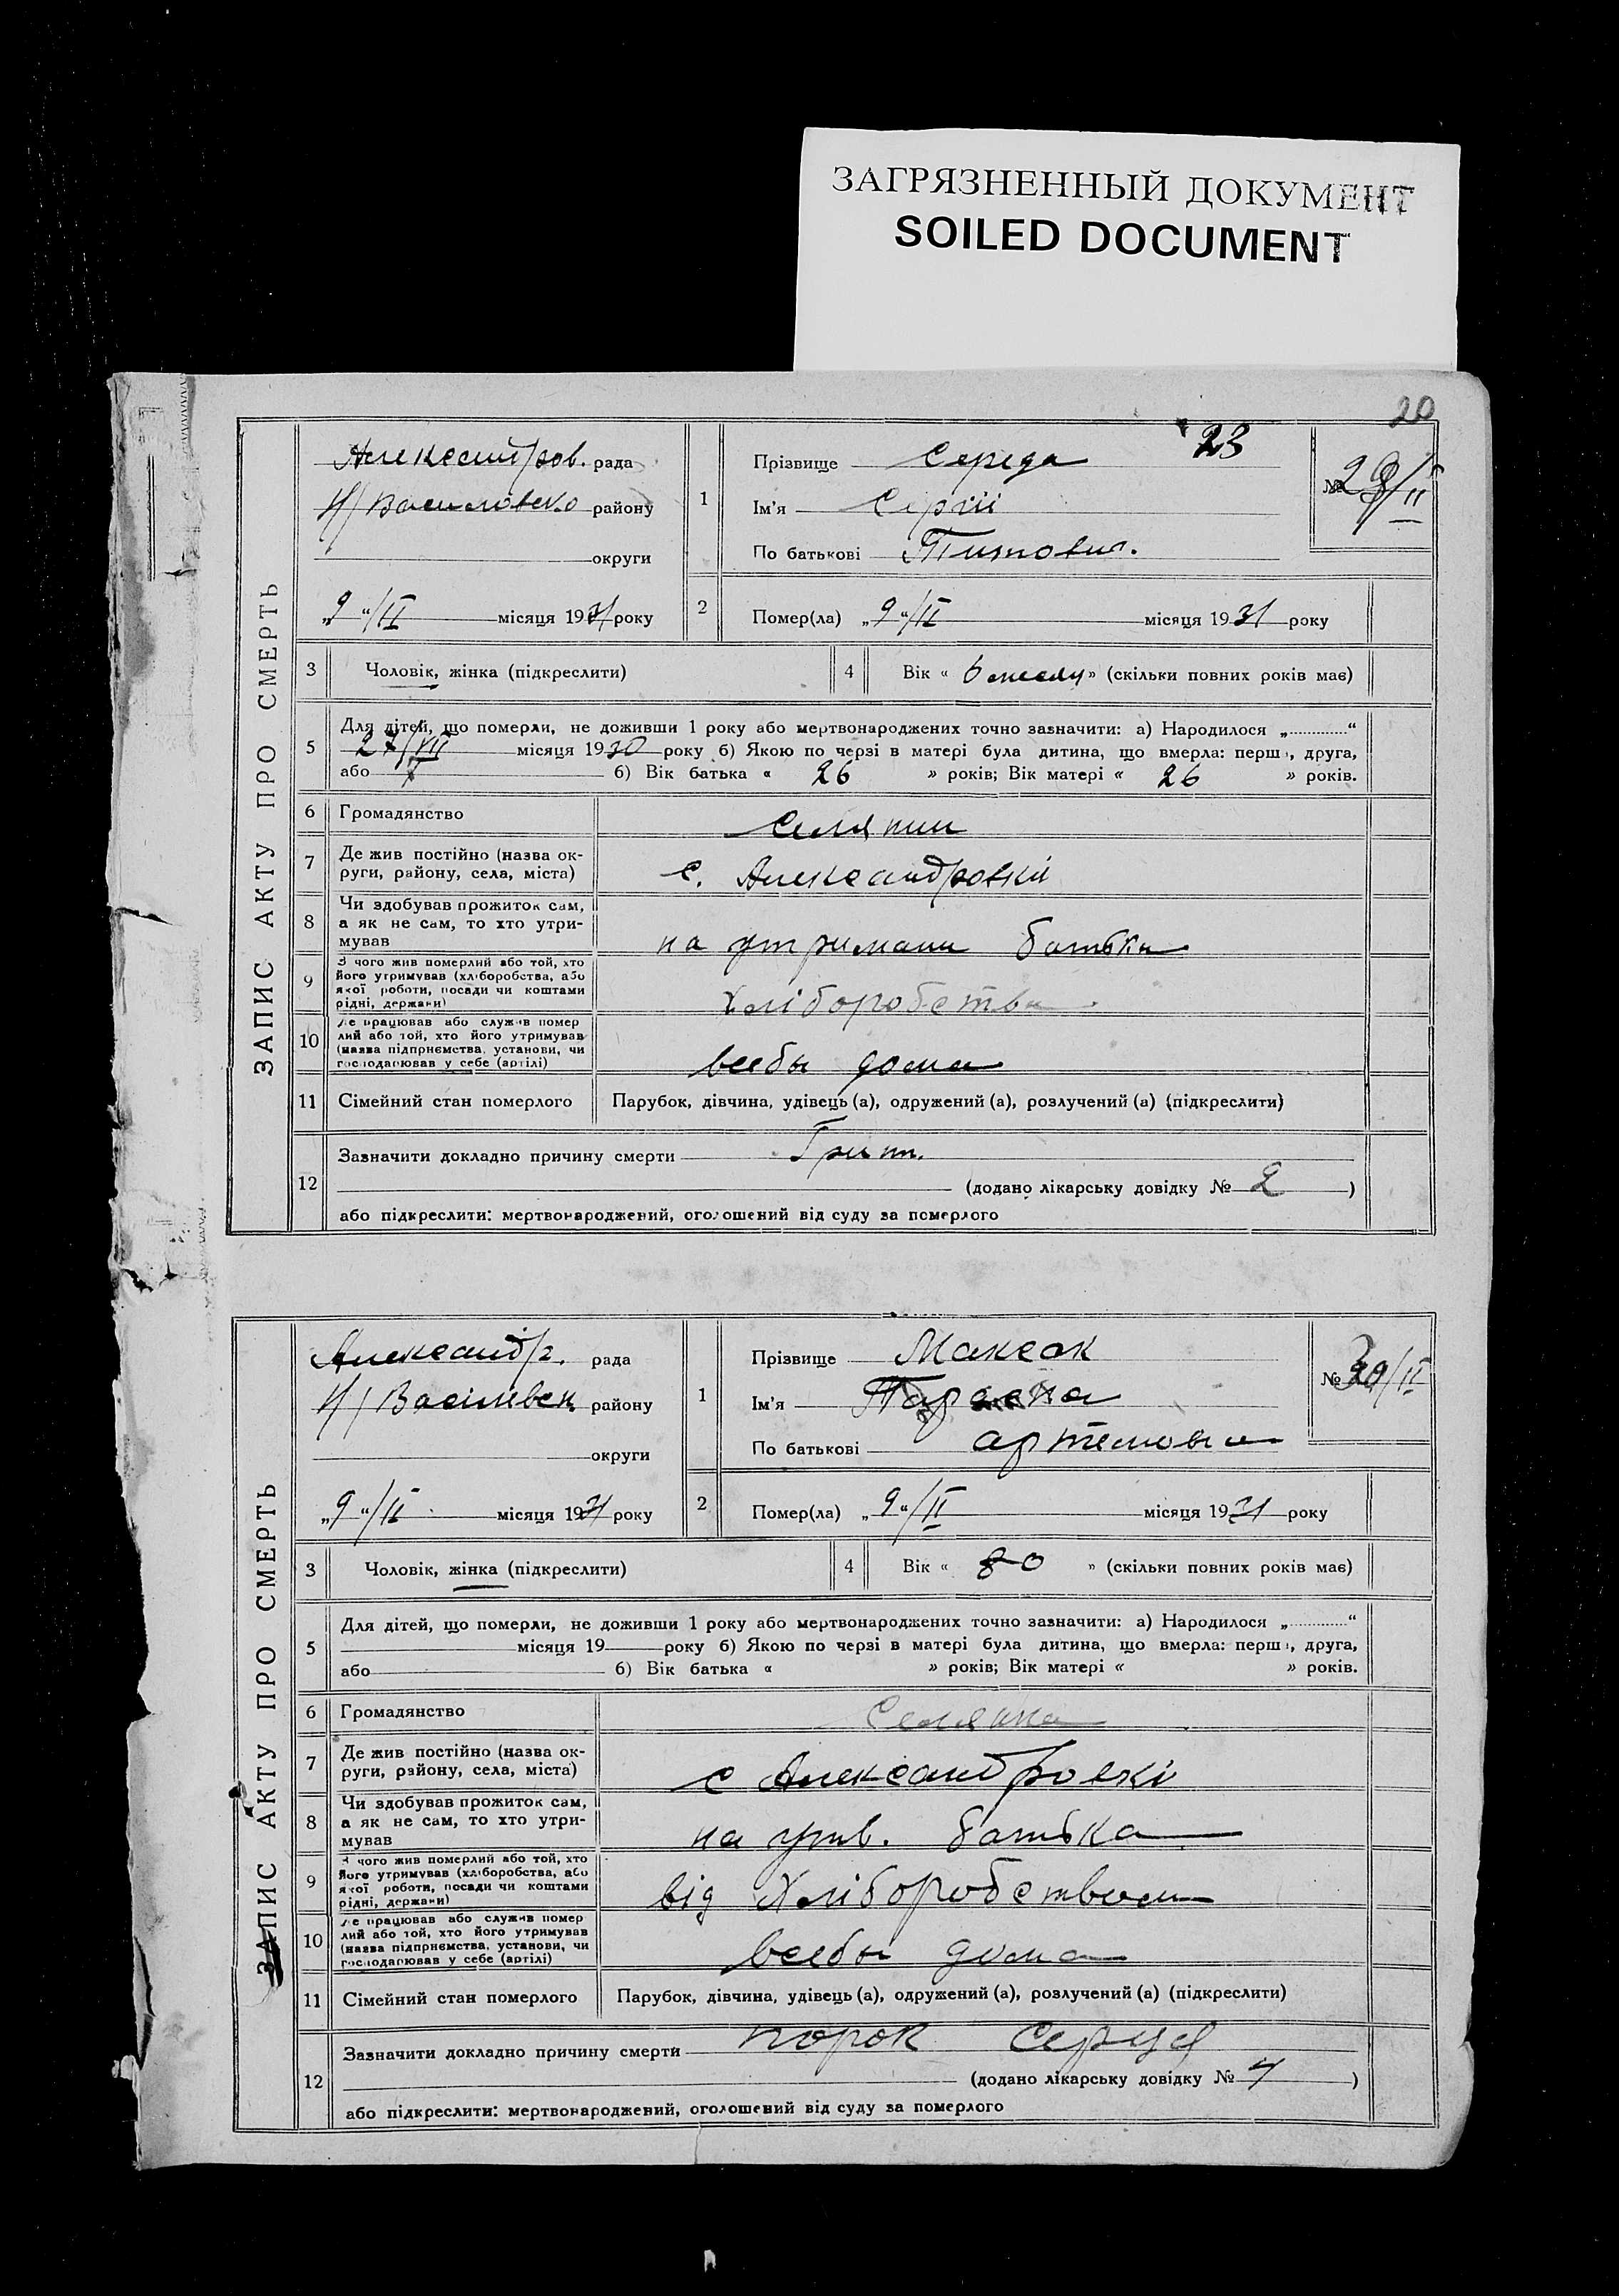 ЗАГРЯЗНЕННЫЙ ДОКУМЕНТ
SOILED DOCUMENT
20
23
ЗАПИС АКТУ ПРО СМЕРТЬ
Александров. рада
Н/Василовско району
округи
„9“/II місяця 1931 року
1
Прізвище Середа
Ім'я Сергій
По батькові Титович.
№ 29/II
2
Помер(ла) „9“/II місяця 1931 року
3 Чоловік, жінка (підкреслити)
4 Вік « 6 месяц » (скільки повних років має)
5
Для дітей, що померли, не доживши 1 року або мертвонароджених точно зазначити: а) Народилося „............“
27/VII місяця 1930 року б) Якою по черзі в матері була дитина, що вмерла: перша, друга,
або б) Вік батька « 26 » років; Вік матері « 26 » років.
6 Громадянство Селянин
7 Де жив постійно (назва ок-
руги, району, села, міста)
с. Александровкі
8 Чи здобував прожиток сам,
а як не сам, то хто утри-
мував
на утримани батька
9 З чого жив померлий або той, хто
його утримував (хліборобства, або
якої роботи, посади чи коштами
рідні, держави)
Хліборобства
10 Де працював або служив помер
лий або той, хто його утримував
(назва підприємства, установи, чи
господарював у себе (артілі)
всебы дома
11 Сімейний стан померлого Парубок, дівчина, удівець (а), одружений (а), розлучений (а) (підкреслити)
12 Зазначити докладно причину смерти Грип.
(додано лікарську довідку № 2 )
або підкреслити: мертвонароджений, оголошений від суду за померлого
ЗАПИС АКТУ ПРО СМЕРТЬ
Александр. рада
Н/Васілівськ. району
округи
„9“/II місяця 1931 року
1
Прізвище Максак
Ім'я Параска
По батькові Артемовна
№ 30/II
2
Помер(ла) „9“/II місяця 1931 року
3 Чоловік, жінка (підкреслити)
4 Вік « 80 » (скільки повних років має)
5
Для дітей, що померли, не доживши 1 року або мертвонароджених точно зазначити: а) Народилося „............“
місяця 19 року б) Якою по черзі в матері була дитина, що вмерла: перша, друга,
або б) Вік батька « » років; Вік матері « » років.
6 Громадянство Селянка
7 Де жив постійно (назва ок-
руги, району, села, міста)
с Александровкі
8 Чи здобував прожиток сам,
а як не сам, то хто утри-
мував
на утв. батька
9 З чого жив померлий або той, хто
його утримував (хліборобства, або
якої роботи, посади чи коштами
рідні, держави)
від Хліборобством
10 Де працював або служив помер
лий або той, хто його утримував
(назва підприємства, установи, чи
господарював у себе (артілі)
всебы дома
11 Сімейний стан померлого Парубок, дівчина, удівець (а), одружений (а), розлучений (а) (підкреслити)
12 Зазначити докладно причину смерти порок Серця
(додано лікарську довідку № 4 )
або підкреслити: мертвонароджений, оголошений від суду за померлого